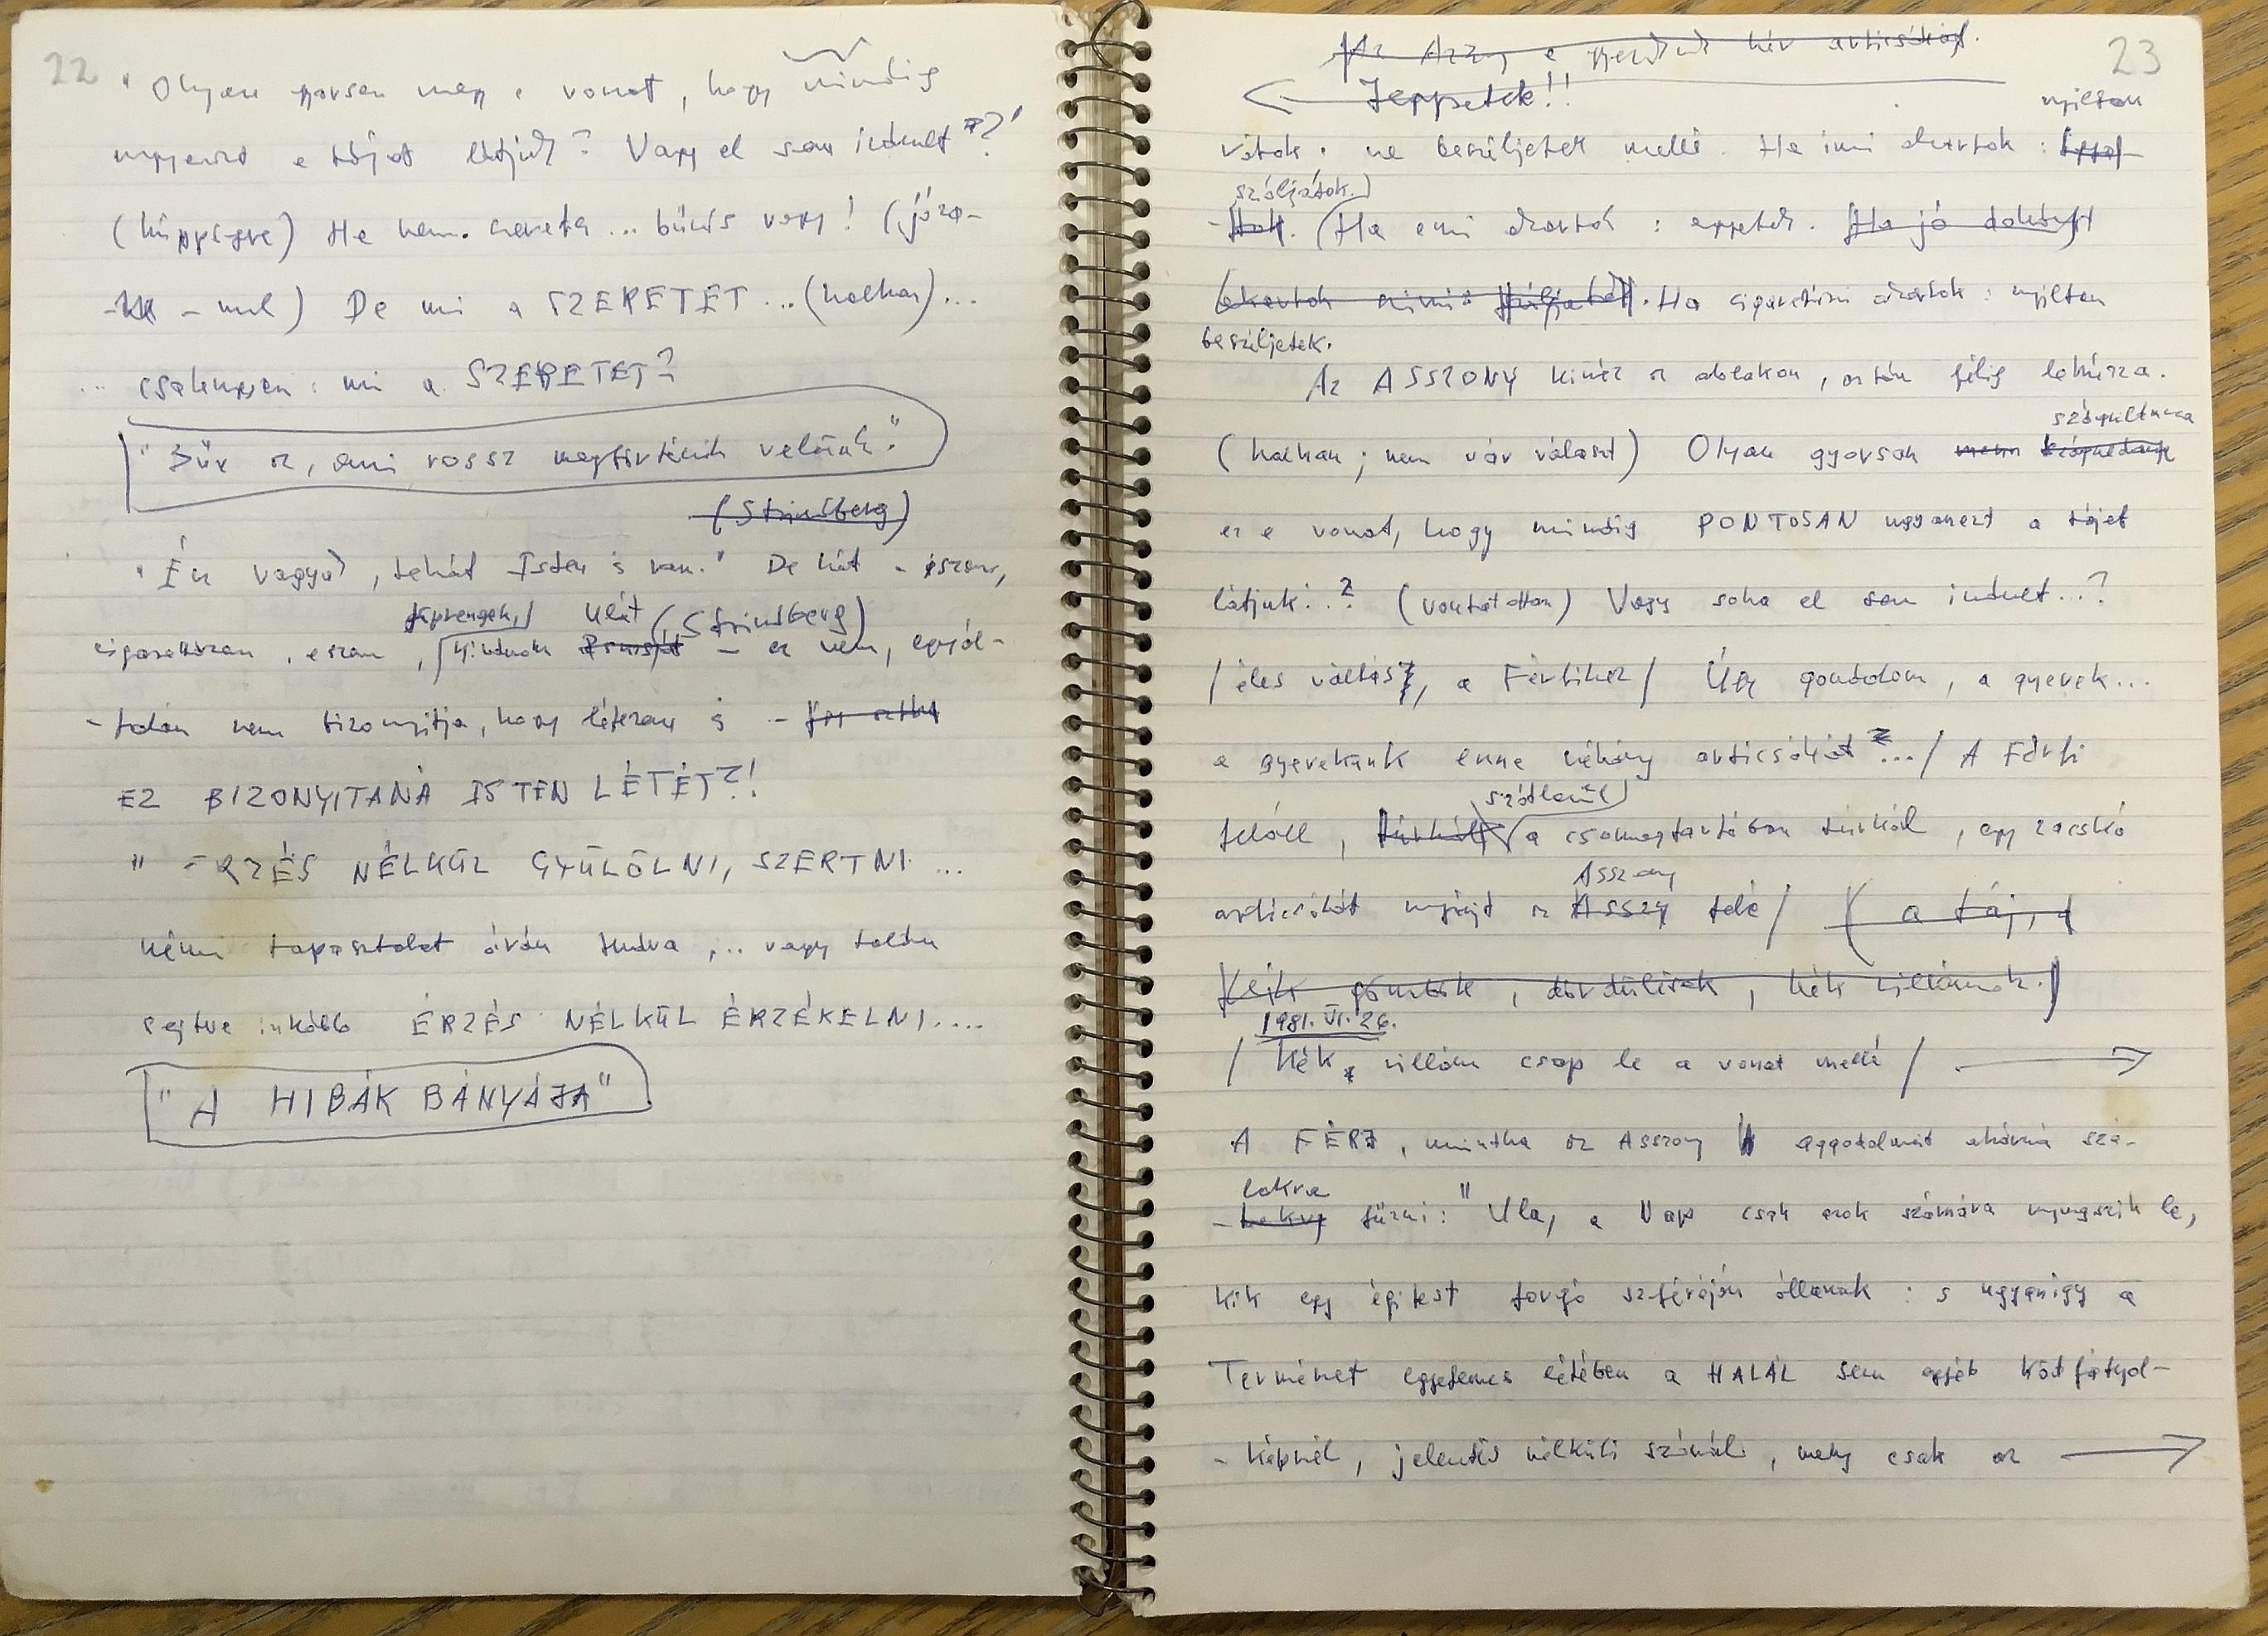 22
"Olyan gyorsan megy a vonat, hogy mindig
ugyanazt a tájat látjuk? Vagy el sem indult?"
(köpp) Ha nem szeretsz... bűnös vagy! (józa-
-nul) De mi a SZERETET...(halkan)...
... csakugyan: mi a SZERETET?
"Bűn az, ami rossz megtörténik velünk."
(Strindberg)
"Én vagyok, tehát Isten is van." De hát - iszom,
töprengek, Ulát (Strindberg)
cigarettázom, eszem, - ez nem, egyál-
-talán nem bizonyítja, hogy létezem is -
EZ BIZONYITANÁ ISTEN LÉTÉT?!
" ÉRZÉS NÉLKÜL GYŰLÖLNI, SZERTNI...
némi tapasztalat árán tudva,... vagy talán
sejtve inkább ÉRZÉS NÉLKÜL ÉRZÉKELNI....
"A HIBÁK BÁNYÁJA"
23
articsókát.
Jeppetek!!
nyiltan
vátok: ne beszéljetek mellé. Ha inni akartok:
szóljatok.)
(Ha enni akartok: egyetek. Ha jó dohányt
akartok Ha cigarettázni akartok: nyiltan
beszéljetek.
Az ASSZONY kinéz az ablakon, aztán félig lehúzza.
száguldana
(halkan; nem vár választ) Olyan gyorsan menn
ez a vonat, hogy mindig PONTOSAN ugyanezt a tájat
látjuk..? (vontatottan) Vagy soha el sem indult...?
/éles váltás, a Férfihez/ Úgy gondolom, a gyerek...
a gyerekünk enne néhány articsókát .../ A Férfi
szótlanúl
feláll, a csomagtartóban turkál, egy zacskó
Asszony
articsókát nyújt az Asszy felé/ ( a táj,
gömbök, dördülések, kék villámok.)
1981. VI. 26.
/ Kék villám csap le a vonat mellé /
A FÉRJ, mintha az Asszony aggodalmát akarná szá-
lakra
- fűzni: "Ula, a Nap csak azok számára nyugszik le,
kik egy égitest forgó szféráján állanak: s ugyanigy a
Természet egyetemes létében a HALÁL sem egyéb ködfátyol-
- képnél, jelentés nélküli szónál, mely csak az